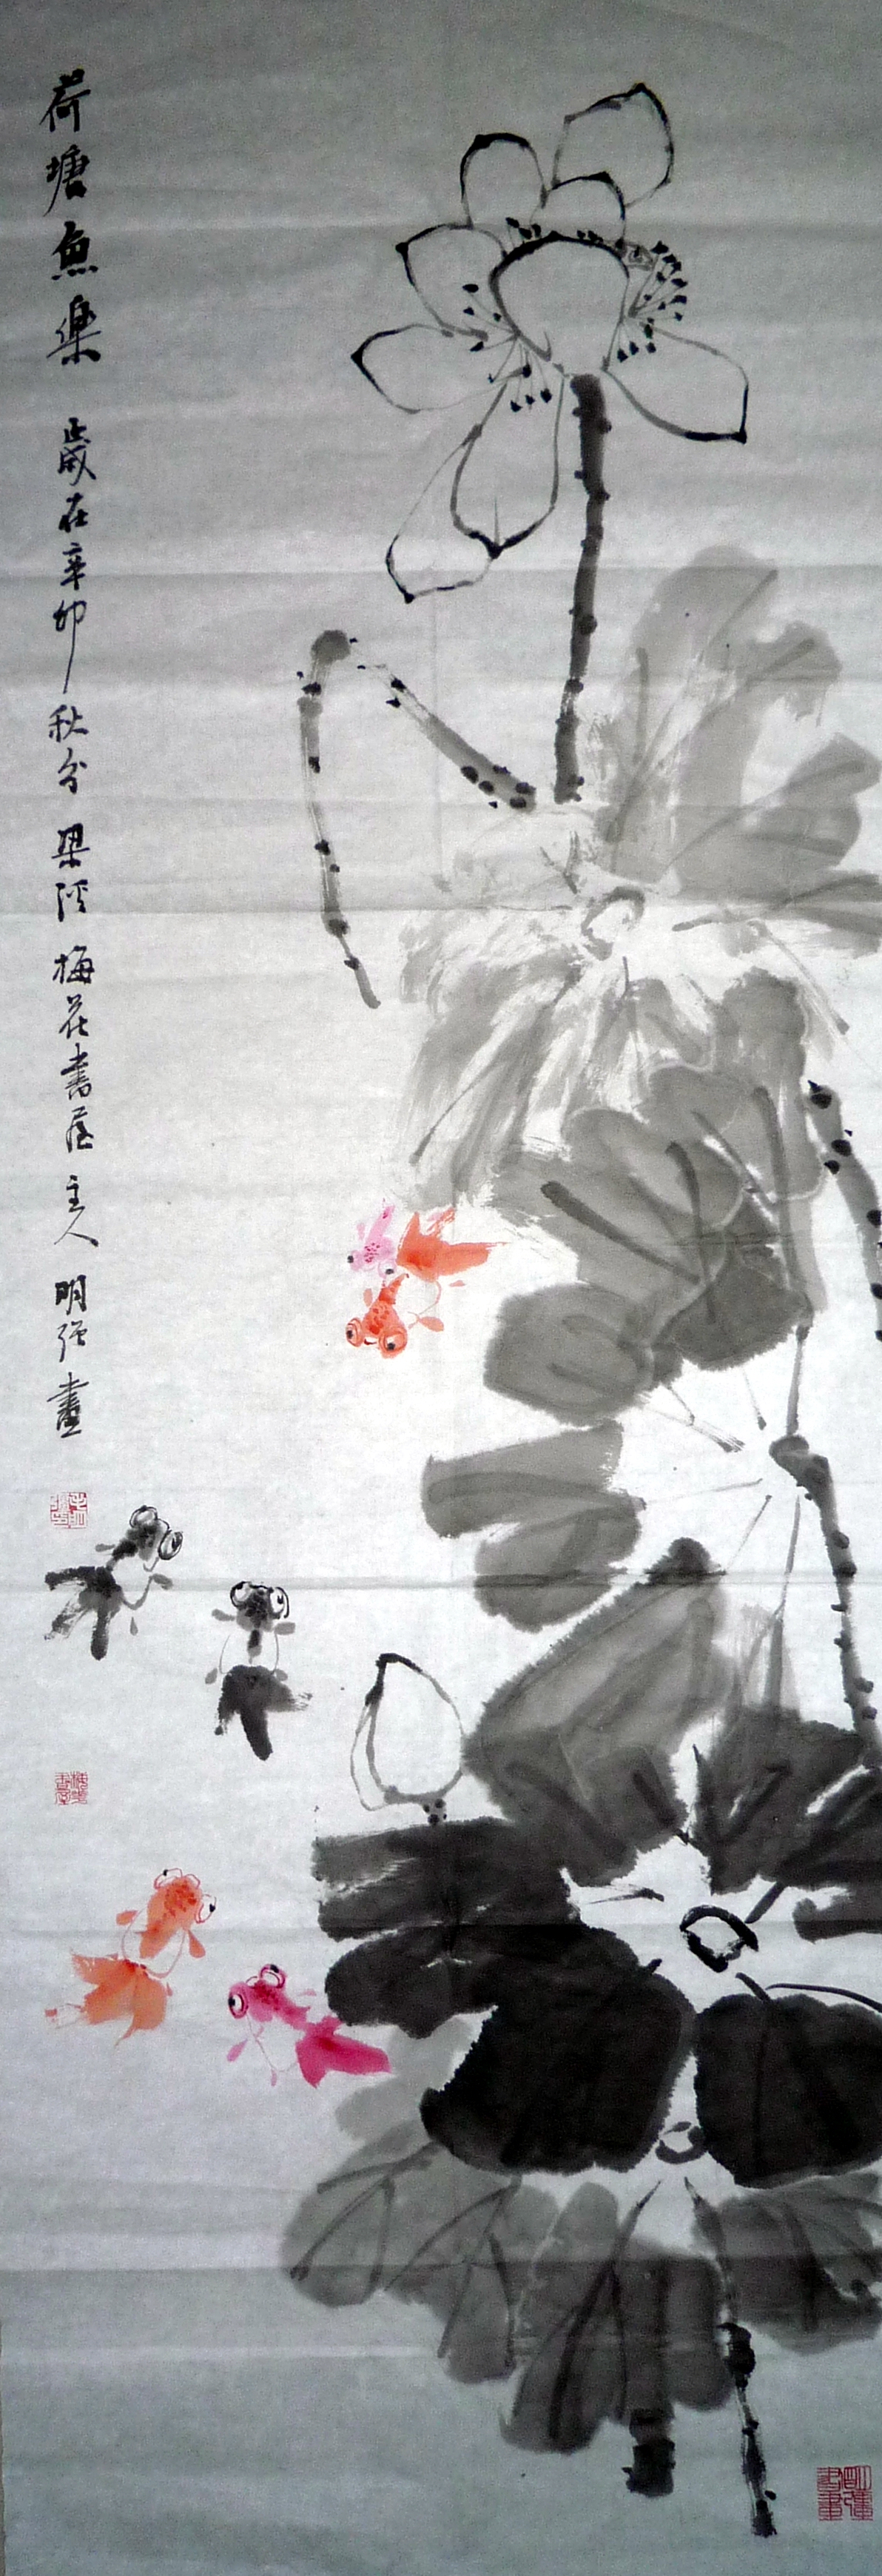 荷塘魚樂 歲在辛卯秋分梁溪梅花書屋主人明强畫